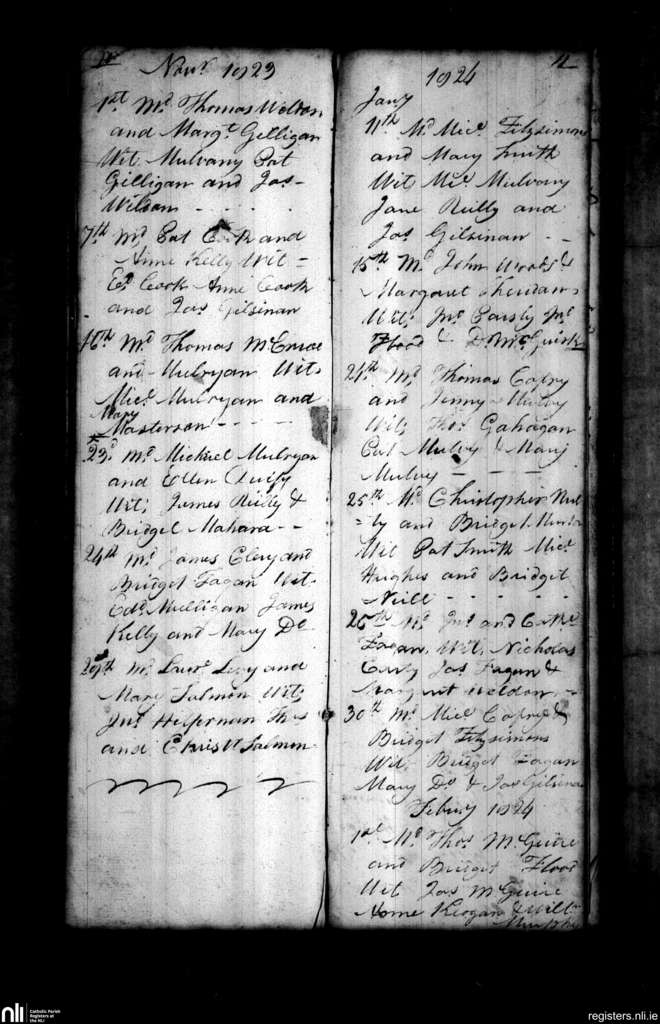 Novr 1823
1st Md Thomas Weldon
and Margt Gilligan
Wit. Mulvany Pat
Gilligan and Jas
Wilson - - - -
7th Md Pat Cook and
Anne Kelly Wit -
Ed Cook Anne Cook
and Jas Gilsinan
16th Md Thomas McEnroe
and Mulryan Wit.
Micl Mulryan and
Mary
Masterson - - - -
23d Md Michael Mulryan
and Ellen Duffy
Wit; James Reilly &
Bridget Mahara - -
24th Md James Clery and
Bridget Fagan Wit.
Edd Mulligan James
Kelly and Mary Do
29th Md Laure Levy and
Mary Salmon Wit;
Jno Helfernan Ths
and Christr Salmon
11
1824
Jany
11th Md Micl Fitzsimons
and Mary Smith
Wit; Micl Mulvany
Jane Reilly and
Jas Gilsinan - -
15th Md John Woods &
Margaret Sheridan
Wit; Jno Jno
Flood & D. McGuirk
24th Md Thomas Caffry
and Jenny Mulvy
Wit; Thos Gahagan
Pat Mulvy & Mary
Mulvy - - -
25th Md Christopher Nul
=ty and Bridget
Wit Pat Smith Micl
Hughes and Bridget
Neill - - - - -
26th Md Jno and Cathe
Fagan, Wit; Nicholas
Jas Fagan &
Margaret Weldon -
30th Md Micl Caffry &
Bridget Fitzsimons
Wit, Bridget Fagan
Mary Do & Jas Gilsinan
Febuy 1824
1st Md Thos McGuire
and Bridget Flood
Wit Jas McGuire
Anne Keogan & Willm
Murphy
nli
Catholic Parish
Registers at
the NLI
registers.nli.ie